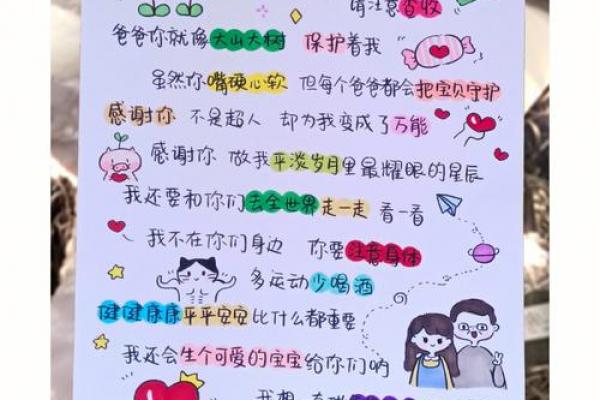 请注意查收
爸爸你就像大山大树 保护着我
虽然你嘴硬心软 但每个爸爸都会把宝贝守护
感谢你 不是超人 却为我变成了万能
感谢你 做我平淡岁月里最耀眼的星辰
我还要和你们去全世界走一走 看一看
我不在你们身边 你要注意身体
多运动少喝酒
健健康康平平安安比什么都重要
我还会生个可爱的宝宝给你们哟
我想